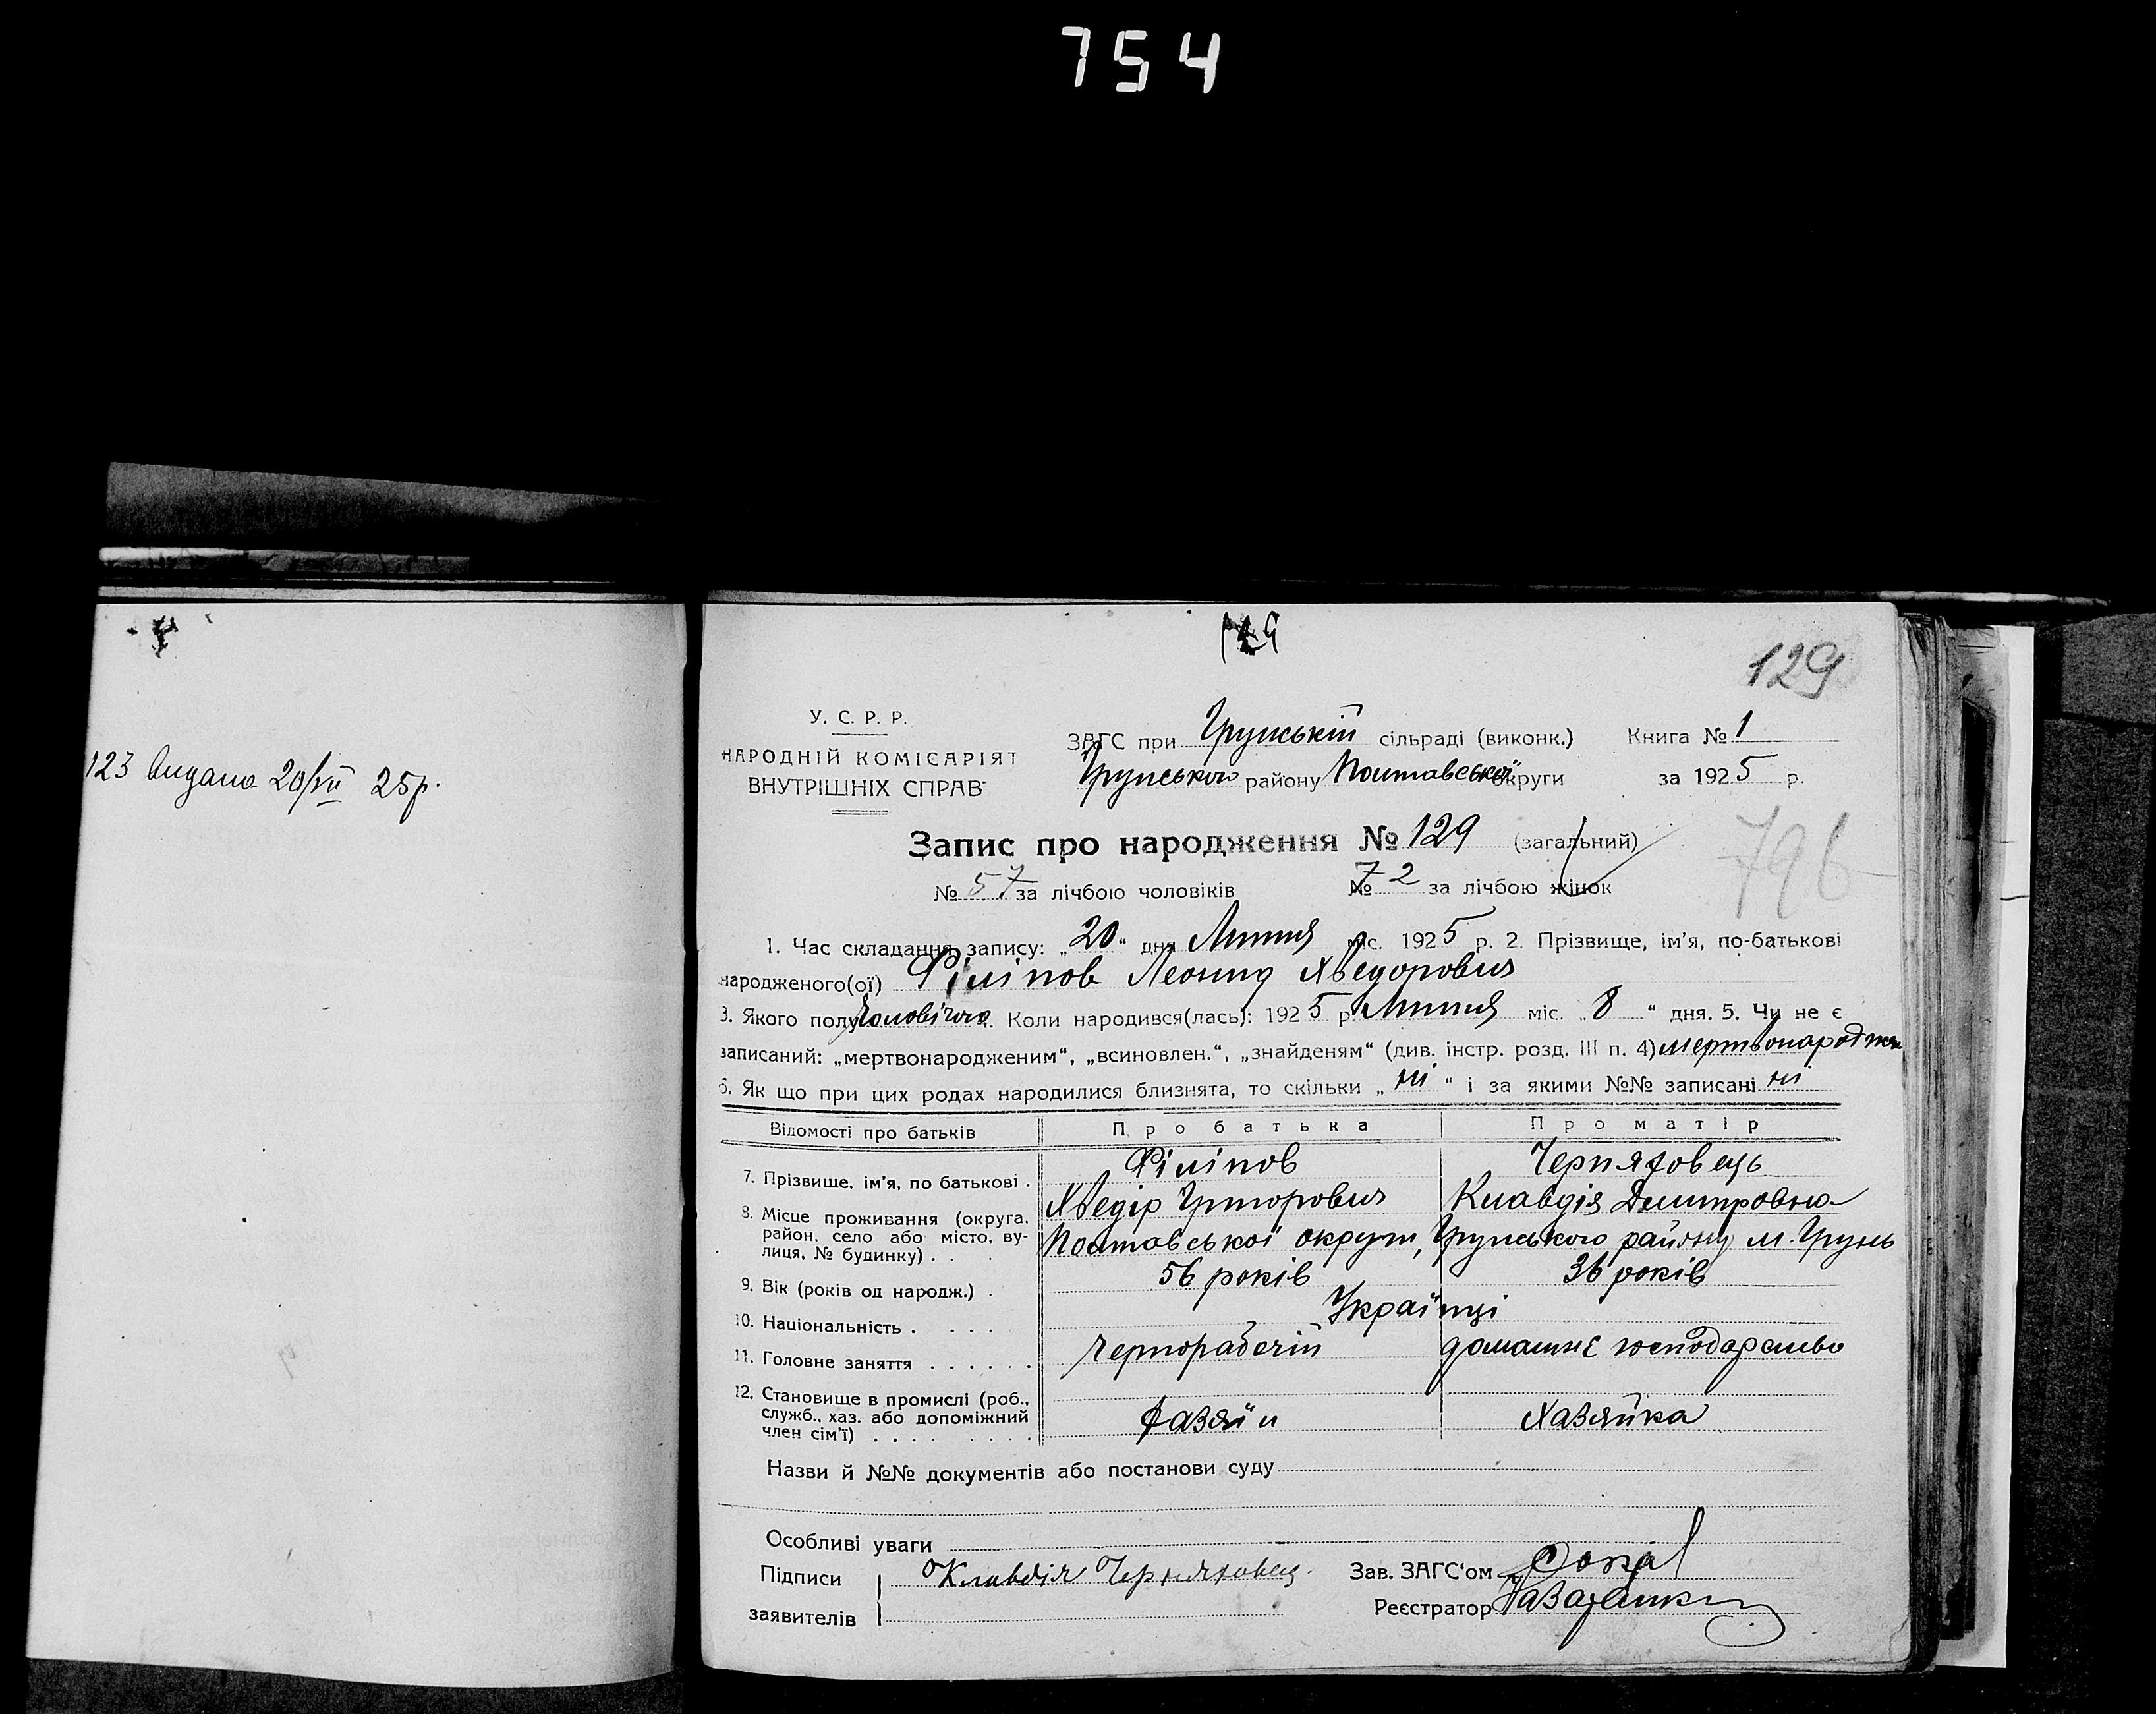 754
129
129
123 Видано 20/VII 25р.
У. С. Р. Р.
НАРОДНІЙ КОМІСАРІЯТ
ВНУТРІШНІХ СПРАВ
ЗАГС при Грунській сільраді (виконк.) Книга № 1
Грунського району Полтавської округи за 1925 р.
Запис про народження № 129 (загальний)
796
№ 57 за лічбою чоловіків № 72 за лічбою жінок
1. Час складання запису: „20“ дня Липня міс. 1925 р. 2. Прізвище, ім'я, по-батькові
народженого(ої) Філіпов Леонид Хведорович
3. Якого полу Чоловічого. Коли народився(лась): 1925 р. Липня міс. „8“ дня. 5. Чи не є
записаний: „мертвонародженим“, „всиновлен.“, „знайденям“ (див. інстр. розд. III п. 4) мертвонароджен
6. Як що при цих родах народилися близнята, то скільки „ні“ і за якими №№ записані ні
Відомості про батьків Про батька Про матір
7. Прізвище, ім'я, по батькові . Філіпов Черняховець
Хведір Григорович Клавдія Дмитровна
8. Місце проживання (округа,
район, село або місто, ву-
лиця, № будинку) . . . Полтавської округи, Грунського району м. Грунь
9. Вік (років од народж.) . 56 років 36 років
10. Національність . . . . Українці
11. Головне заняття . . . . . . Чернорабочій домашнє господарство
12. Становище в промислі (роб.,
служб., хаз. або допоміжний
член сім'ї) . . . . . . . . Хазяїн Хазяйка
Назви й №№ документів або постанови суду
Особливі уваги
Підписи Клавдія Черняховец. Зав. ЗАГС'ом
заявителів Реєстратор